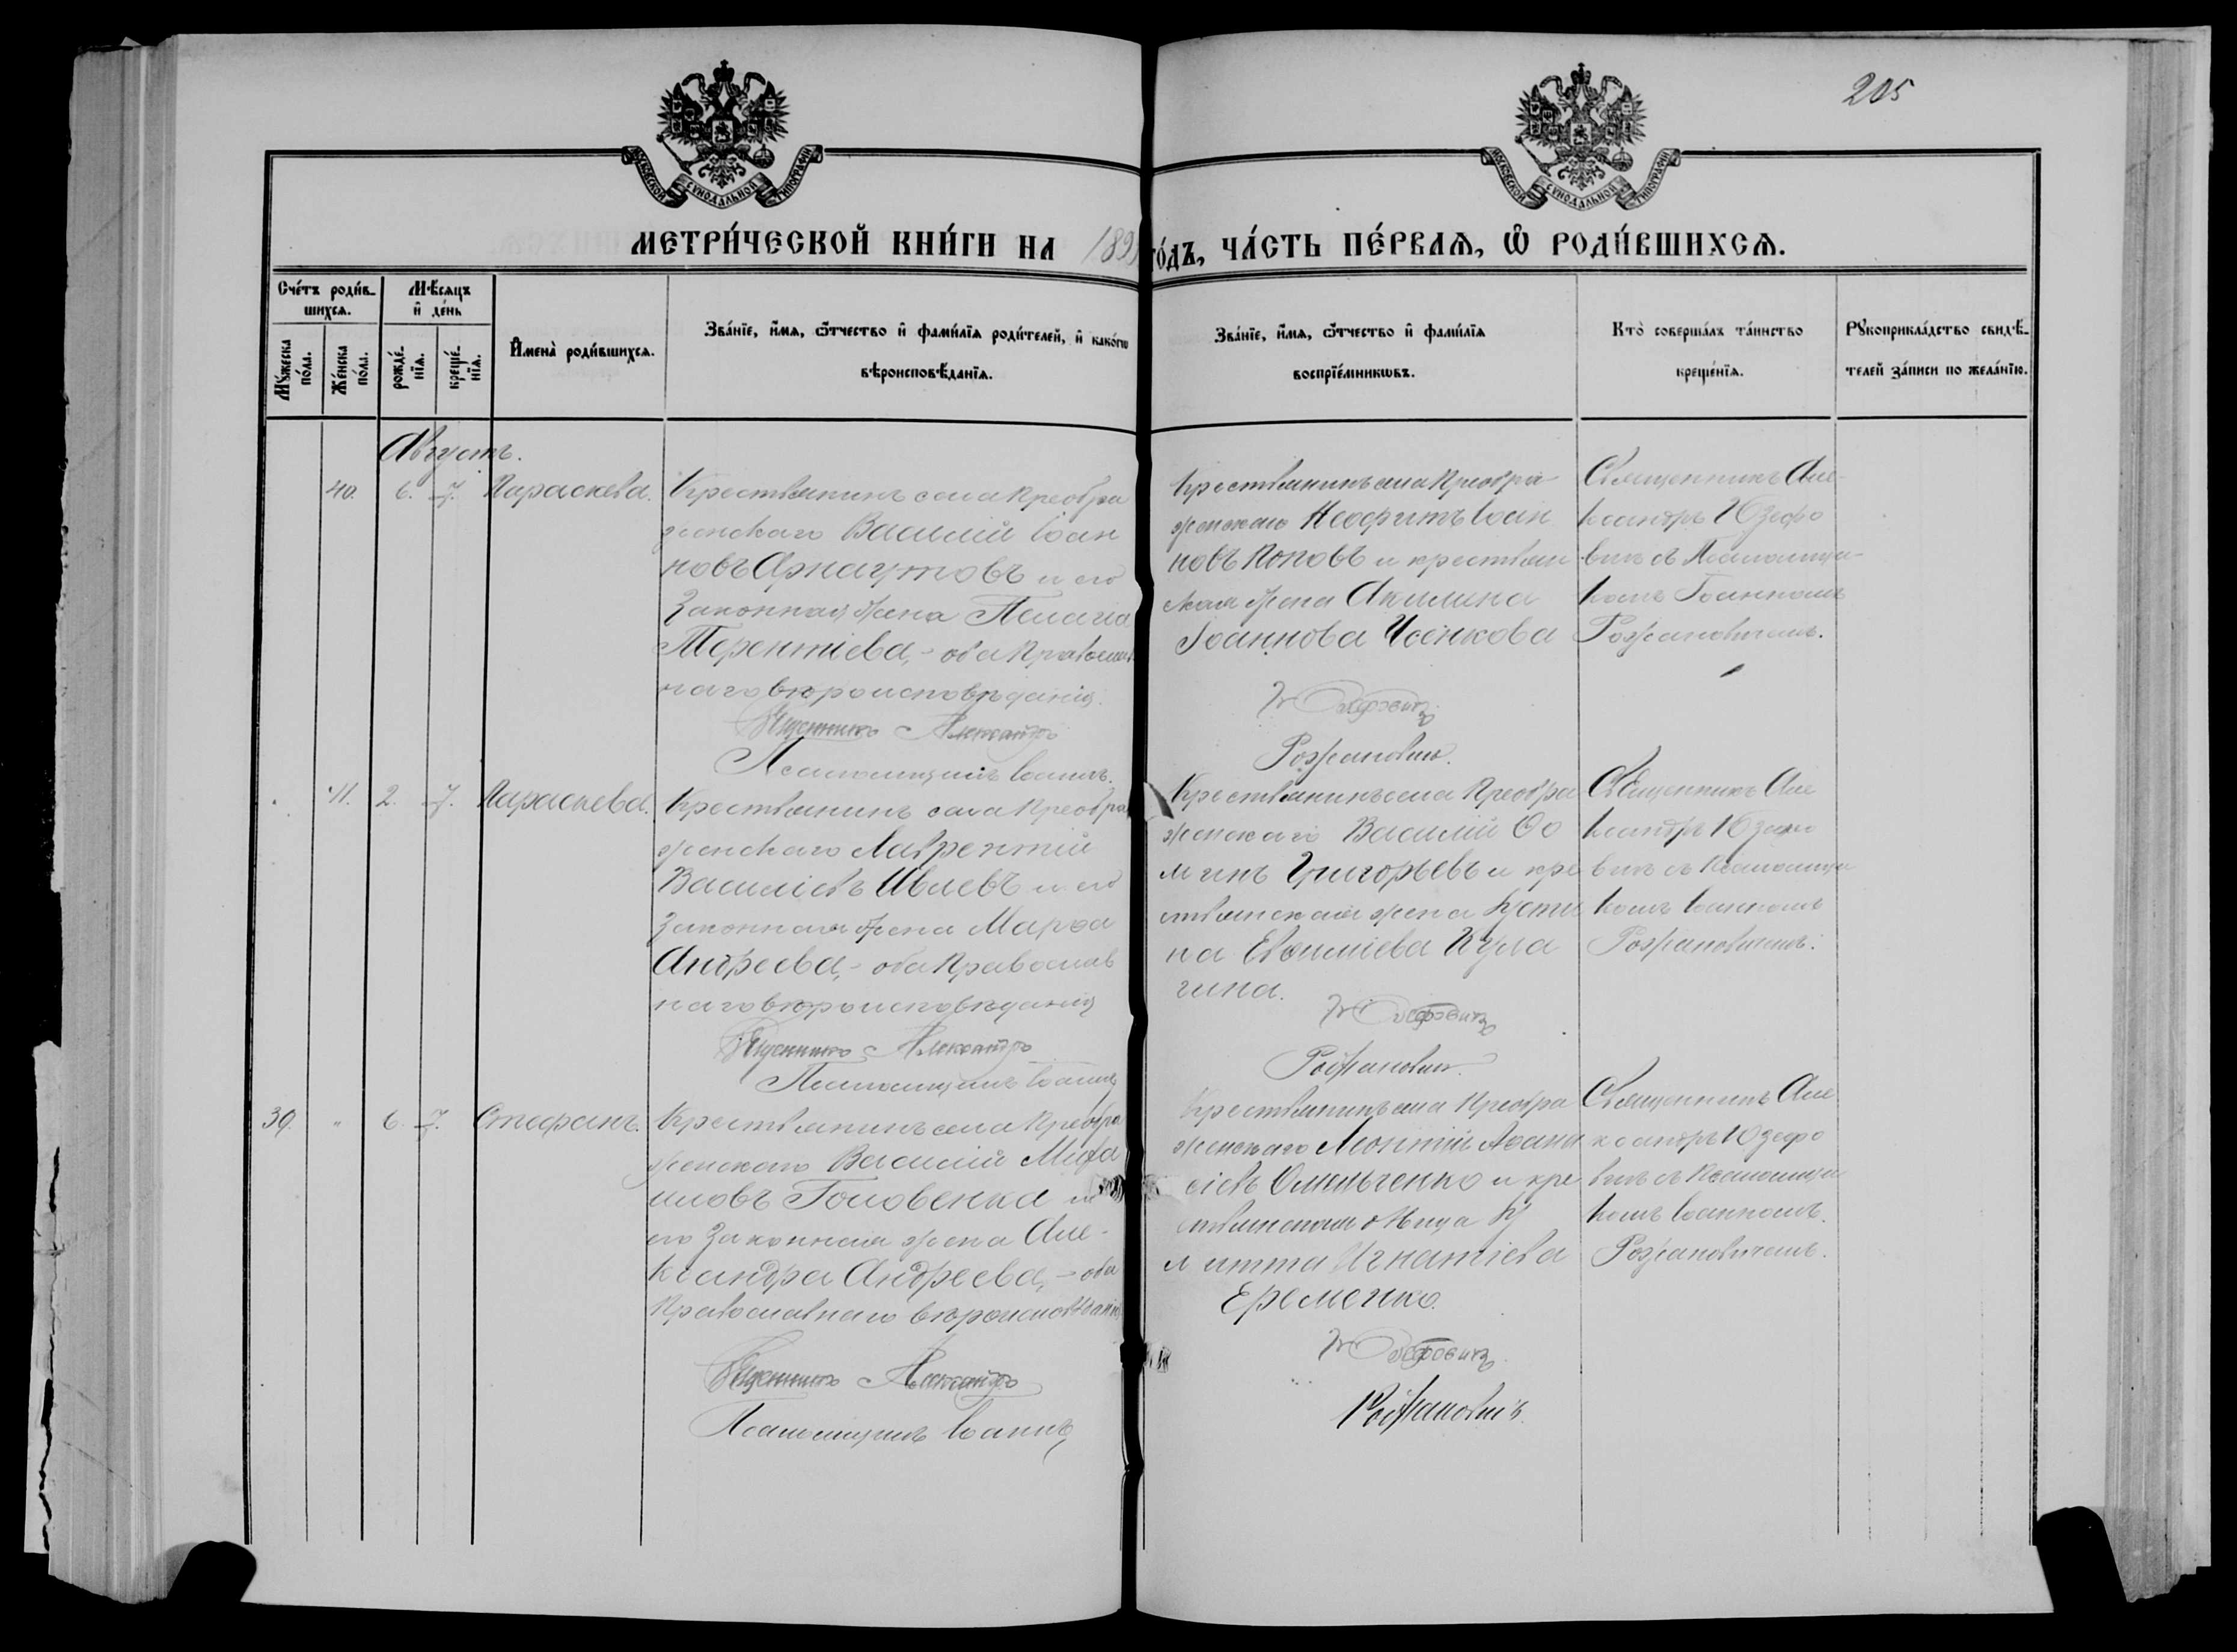 205
МОСКОВСКОЙ СѴНОДАЛЬНОЙ ТИПОГРАФІИ
МОСКОВСКОЙ СѴНОДАЛЬНОЙ ТИПОГРАФІИ
МЕТРИ́ЧЕСКОЙ КНИ́ГИ НА 189 го́дъ, ЧА́СТЬ ПЕ́РВАѦ, Ѿ РОДИ́ВШИХСѦ.
Сче́тъ роди́в-
шихсѧ.
Мꙋ́жеска по́ла.
Же́нска по́ла.
Мѣ́сѧцъ
и҆ де́нь
рожде́-
нїѧ.
креще́-
нїѧ.
И҆мена̀ роди́вшихсѧ.
Зва́нїе, и҆́мѧ, ѻ҆́тчество и҆ фами́лїѧ роди́телей, и҆ како́гѡ
вѣроисповѣ́данїѧ.
Зва́нїе, и҆́мѧ, ѻ҆́тчество и҆ фами́лїѧ
воспрїе́мникѡвъ.
Кто̀ соверша́лъ та́инство
креще́нїѧ.
Рꙋкоприкла́дство свидѣ́-
телей за́писи по жела́нїю.
Августъ.
40. 6. 7. Параскева.
Крестьянинъ села Преобра
женскаго Василій Іоан
новъ Арнаутовъ и его
законная жена Пелагія
Терентіева, - оба православ
наго вѣроисповѣданія.
Священникъ Александръ
Псаломщикъ Іоаннъ
Крестьянинъ села Преобра-
женскаго Неофитъ Іоан
новъ Поповъ и крестьян
ская жена Акилина
Іоаннова
Юзефовичъ
Рожановичъ.
Священникъ Але-
ксандръ Юзефо
вичъ съ Псаломщи-
комъ Іоанномъ
Рожановичемъ.
41. 2. 7. Параскева.
Крестьянинъ села Преобра
женскаго Лаврентій
Василіевъ Ивлевъ и его
законная жена Марѳа
Андреева, - оба православ
наго вѣроисповѣданія
Священникъ Александръ
Псаломщикъ Іоаннъ
Крестьянинъ села Преобра
женскаго Василій Ѳо
минъ Григорьевъ и кре
стьянская жена Усти
на Евѳиміева Кула
гина.
Юзефовичъ
Рожановичъ.
Священникъ Але
ксандръ Юзефо
вичъ съ Псаломщи
комъ Іоанномъ
Рожановичемъ.
39. " 6. 7. Стефанъ.
Крестьянинъ села Преобра
женскаго Василій Миха
иловъ Головенка и
его законная жена Але-
ксандра Андреева, - оба
Православнаго вѣроисповѣданія
Священникъ Александръ
Псаломщикъ Іоаннъ
Крестьянинъ села Преобра
женскаго Леонтій Аѳана
сіевъ Омельченко и кре
стьянская
Игнатіева
Еременко.
Юзефовичъ
Рожановичъ.
Священникъ Але
ксандръ Юзефо
вичъ съ Псаломщи
комъ Іоанномъ.
Рожановичемъ.